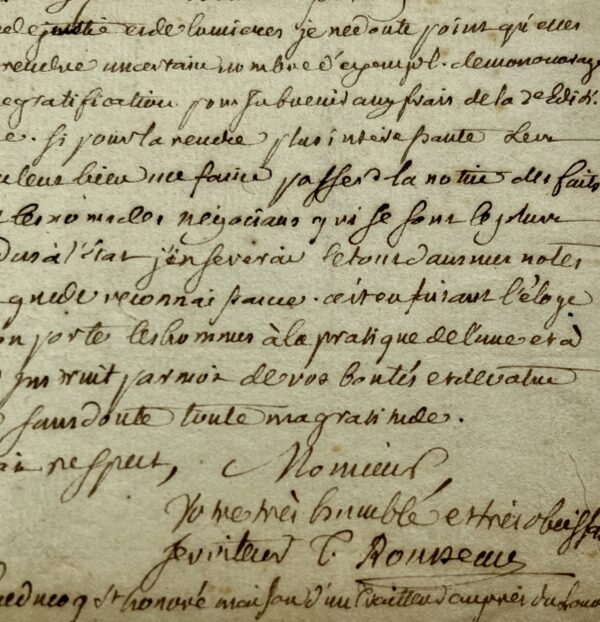 de justice et de lumieres je ne doute point qu'elles
rendre un certain nombre d'exempl. de mon ouvrage
gratification pour subvenir aux frais de la 2e Edit.
e. si pour la rendre plus interessante leur
veulent bien me faire passer la notice des faits
les noms des négocians qui se sont le plus
dus à l'état j'insererai le tout dans mes notes
que de reconnaissance. c'est en faisant l'éloge
on porte les hommes à la pratique de l'une et à
instruit par moi de vos bontés et de votre
sans doute toute ma gratitude.
respect, Monsieur,
Votre très humble et très obeissa
serviteur T. Rousseau
du coq St honoré maison d'un Traiteur auprès du